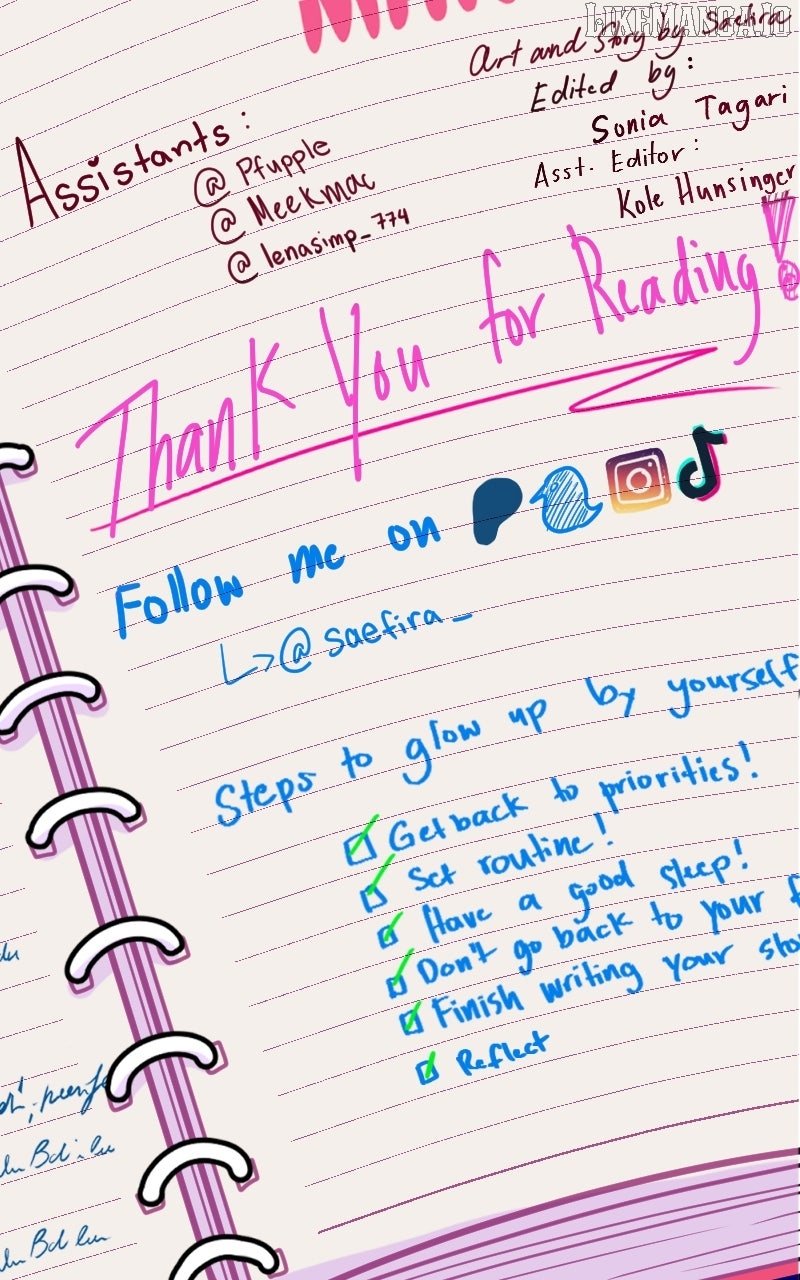 LIKEMANGA.IO
Art and Story by Saefira
Edited by:
Sonia Tagari
Asst. Editor:
Kole Hunsinger
Assistants:
@ Pfupple
@ Meekmac
@ lenasimp_774
Thank You for Reading!
Follow me on
@ saefira_
Steps to glow up by yourself
Get back to priorities!
Set routine!
Have a good sleep!
Don't go back to your
Finish writing your
Reflect